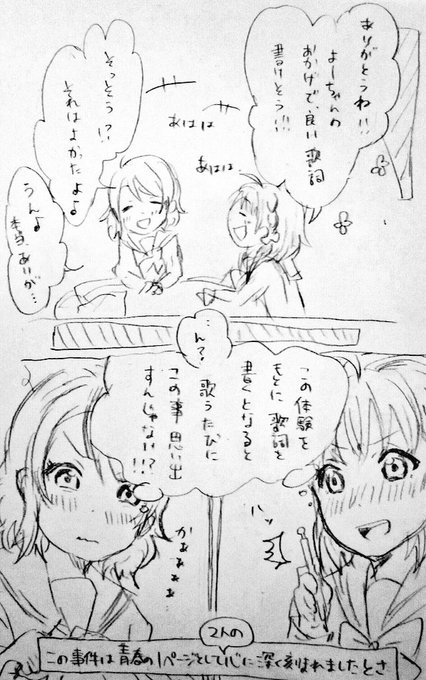 ありがとうね!!
よーちゃんの
おかげで、良い歌詞
書けそう!!!
あはは
あはは
そっそう!?
それはよかったよよ
うんよ
本当、ありが…
…ん?
この体験を
もとに歌詞を
書くとなると
歌うたびに
この事思い出
すんじゃない!?!!
ハッ
かぁぁぁぁ
この事件は青春の1ページとして2人の心に深く刻まれましたとさ